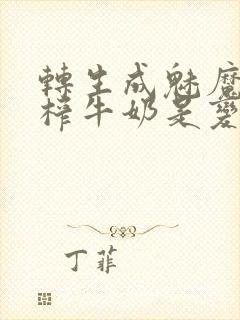 轉生成魅魔
榨牛奶是變
丁菲